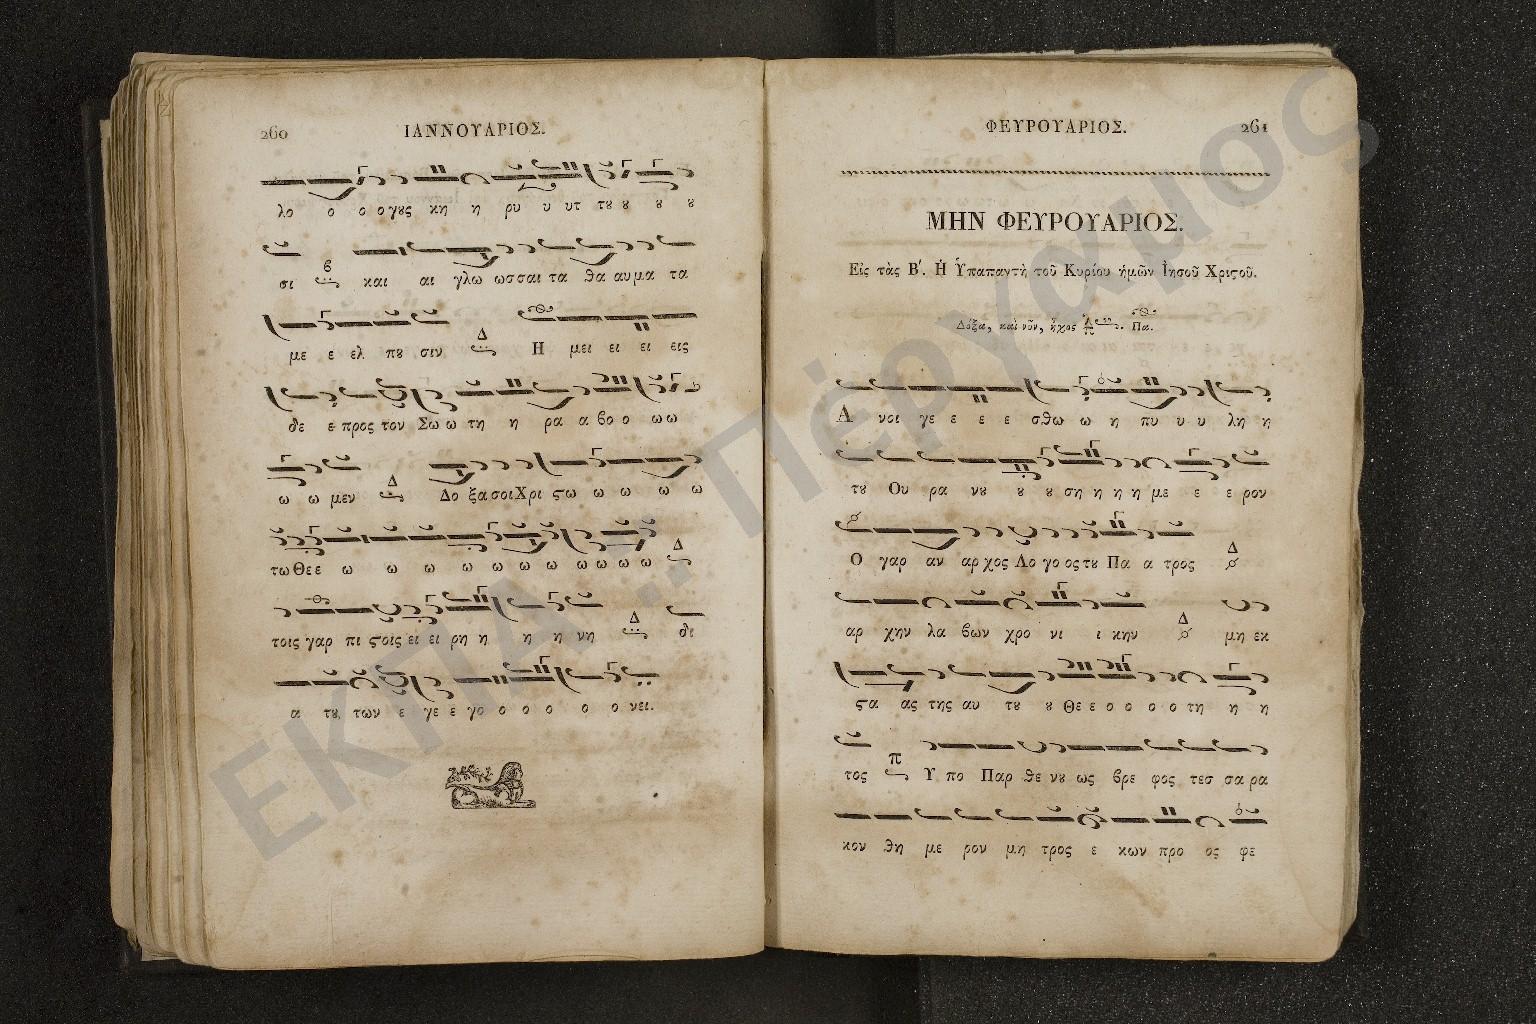 260 ΙΑΝΝΟΥΑΡΙΟΣ.
λο ο ο ο γȣς κη η ρυ υ υτ τȣ ȣ ȣ ȣ
β
σι και αι γλω ωσσαι τα θα αυμα τα
Δ
με ε ελ πȣ σιν Η μει ει ει εις
δε ε προς τον Σω ω τη η ρα α βο ο ω ω
Δ
ω ω μεν Δο ξα σοι Χρι ϛω ω ω ω ω
Δ
τω Θε ε ω ω ω ω ω ω ω ω ω ω
Δ
τοις γαρ πι ϛοις ει ει ρη η η η νη δι
α τȣ των ε γε ε γο ο ο ο ο ο νει.
ΦΕΥΡΟΥΑΡΙΟΣ. 261
ΜΗΝ ΦΕΥΡΟΥΑΡΙΟΣ.
Εἰς τὰς Β΄. Ἡ Ὑπαπαντὴ τοῦ Κυρίου ἡμῶν Ἰησοῦ Χριϛοῦ.
Δόξα, καὶ νῦν, ἦχος Πα.
Α νοι γε ε ε ε σθω ω η πυ υ υ λη η
τȣ Ου ρα νȣ ȣ ȣ ση η η η με ε ε ρον
Δ
Ο γαρ αν αρ χος Λο γο ος τȣ Πα α τρος
Δ
αρ χην λα βων χρο νι ι κην μη εκ
ϛα ας της αυ τȣ ȣ Θε ε ο ο ο ο τη η η
π
τος Υ πο Παρ θε νȣ ως βρε φος τεσ σα ρα
κον θη με ρον μη τρος ε κων προ ος φε
ΕΚΠΑ :: Πέργαμος